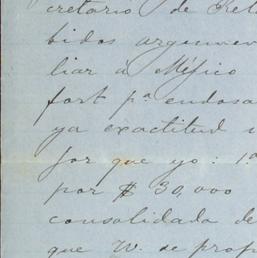 cretario de Rela
bidos argumen
liar á Méjico
fort pª endosa
ya exactitud
jor que yo: 1º
por $ 30,000
consolidada de
que W. se prop